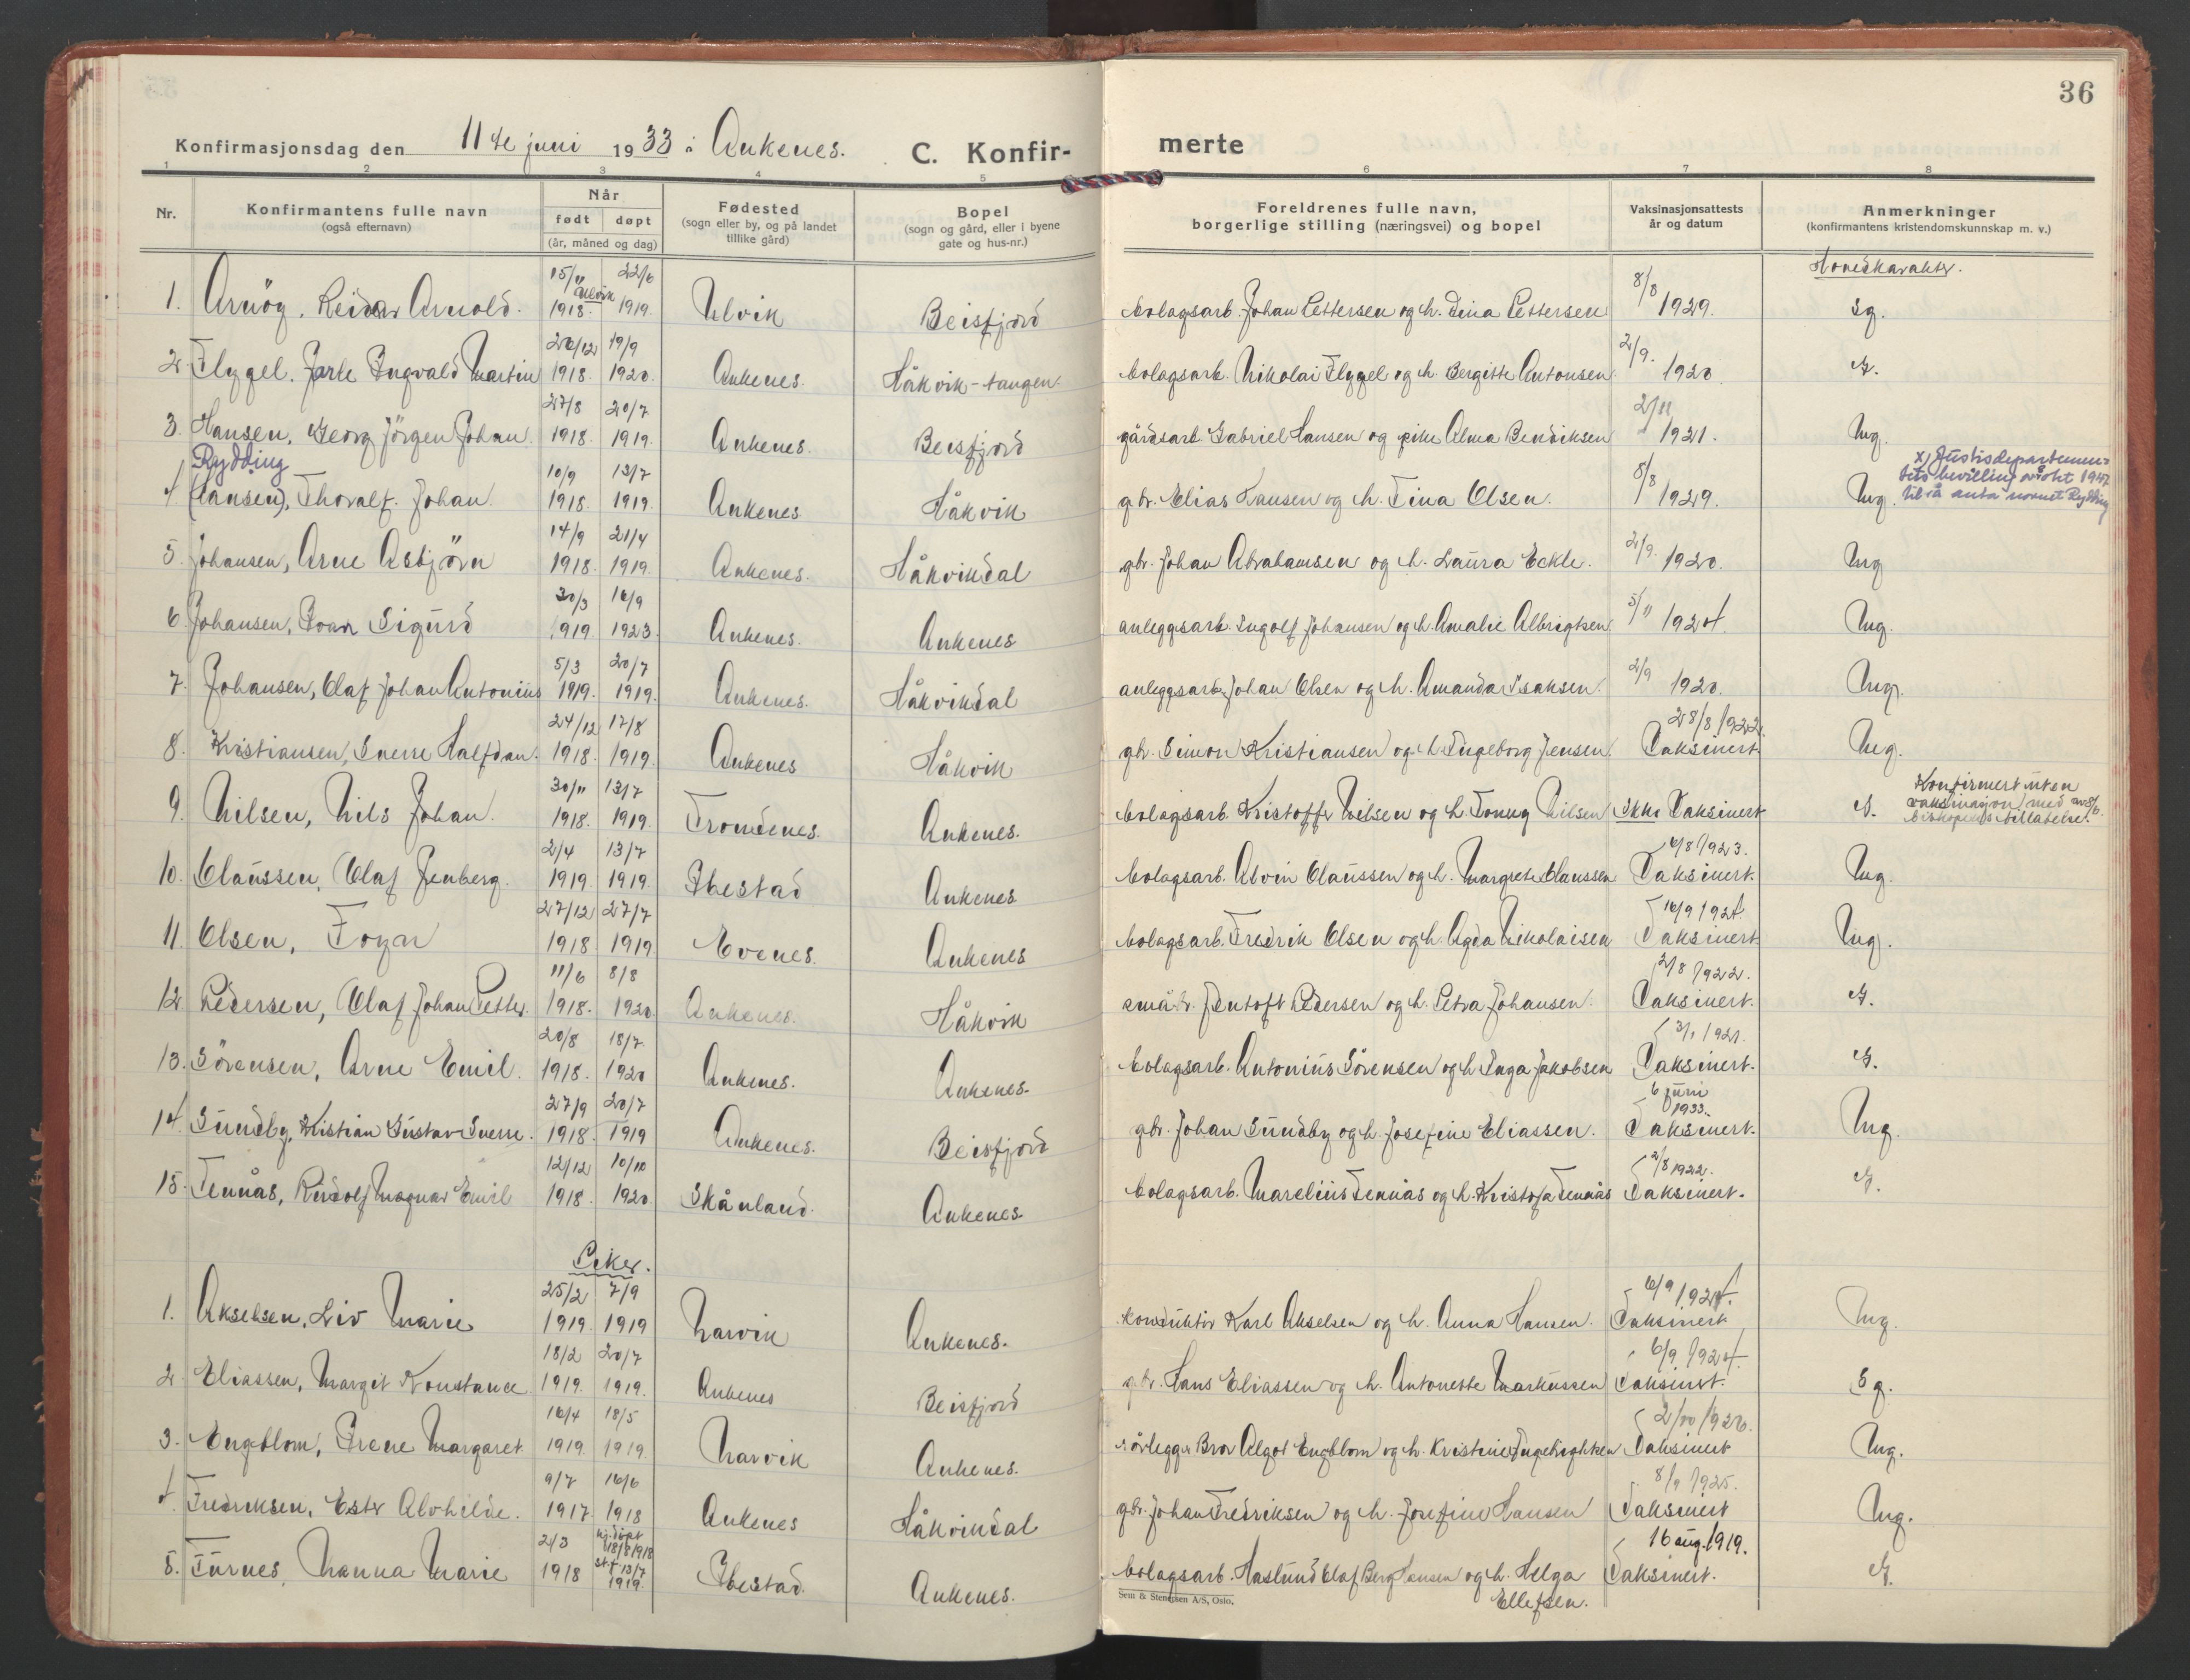 36
Konfirmasjonsdag den 11te juni 1933 i Ankenes. C. Konfir- merte
1 2 3 4 5 6 7 8
Nr. Konfirmantens fulle navn (også efternavn) Når født døpt (år, måned og dag) Fødested (sogn eller by, og på landet tillike gård) Bopel (sogn og gård, eller i byene gate og hus-nr.) Foreldrenes fulle navn, borgerlige stilling (næringsvei) og bopel Vaksinasjonsattests år og datum Anmerkninger (konfirmantens kristendomskunnskap m. v.)
Hovedkarakter.
1. Arnög, Reidar Arnold. 15/11 1918. 22/6 Ulvik 1919. Ulvik Beisfjord bolagsarb. Johan Pettersen og h. Dina Pettersen 8/8 1929. Sg.
2. Flygel. Jarle Ingvald Martin 26/12 1918. 19/9 1920. Ankenes. Håkvik-tangen. bolagsarb. Nikolai Flygel og h. Bergitte Antonsen 2/9. 1920. G.
3. Hansen, Georg Jörgen Johan. 27/8 1918. 20/7 1919. Ankenes. Beisfjord gårdsarb. Gabriel Hansen og pike Alma Bendiksen 2/11 1921. Mg.
Rydding
4 (Hansen), Thoralf. Johan. 10/9 1918. 13/7 1919. Ankenes Håkvik gbr. Elias Hansen og h. Tina Olsen. 8/8 1929. Mg. x) Justisdepartemen- tets bevilling av okt 1947 til å anta navnet Rydding
5. Johansen, Arne Asbjörn 14/9 1918. 21/4 1919. Ankenes. Håkvikdal gbr. Johan Abrahamsen og h. Laura Eckle. 2/9. 1920. Mg
6. Johansen, Roar Sigurd 30/3 1919 16/9 1923. Ankenes. Ankenes anleggsarb. Ingolf Johansen og h. Amalie Albrigtsen 5/11 1924. Mg.
7. Johansen, Olaf Johan Antonius 5/3 1919. 20/7 1919. Ankenes. Håkvikdal anleggsarb. Johan Olsen og h. Amanda Isaksen. 2/9 1920. Mg.
8. Kristiansen, Sverre Halfdan. 24/12 1918. 17/8 1919. Ankenes Håkvik gbr. Simon Kristiansen og h. Ingeborg Jensen. 28/8 1922. Vaksinert. Mg.
9. Nilsen, Nils Johan. 30/11 1918. 13/7 1919. Trondenes. Ankenes. bolagsarb. Kristoffer Nilsen og h. Tonny Nilsen Ikke Vaksinert G. Konfirmert uten vaksinasjon med biskopens tillatelse.
10. Claussen, Olaf Jenberg. 2/4 1919. 13/7 1919. Ibestad Ankenes bolagsarb. Alvin Claussen og h. Margrete Claussen 6/8 1923. Vaksinert. Mg.
11. Olsen, Tozar 27/12 1918. 27/7 1919 Evenes. Ankenes bolagsarb. Fredrik Olsen og h. Agda Nikolaisen 16/9 1924. Vaksinert Mg.
12. Pedersen, Olaf Johan Petter. 11/6 1918. 8/8 1920. Ankenes. Håkvik småbr. Jentoft Pedersen og h. Petra Johansen. 2/8 1922. Vaksinert. G.
13. Sörensen, Arne Emil. 20/8 1918. 18/7. 1920 Ankenes. Ankenes. bolagsarb. Antonius Sörensen og h. Inga Jakobsen 3/1 1921. Vaksinert. G.
14. Sundby, Kristian Gustav Sverre. 27/9 1918. 20/7 1919 Ankenes. Beisfjord gbr. Johan Sundby og h. Josefine Eliassen. 6 juni 1933. Vaksinert. Mg.
15. Tennås, Rudolf Magnar Emil 12/12 1918. 10/10 1920 Skånland. Ankenes. bolagsarb. Marelius Tennås og h. Kristofa Tennås 2/8 1922. Vaksinert. G.
Piker.
1. Akselsen, Liv Marie 25/2 1919. 7/9 1919 Narvik Ankenes. konduktör Karl Akselsen og h. Anna Hansen. 6/9 1924. Vaksinert Mg.
2. Eliassen, Margit Konstance 18/2 1919. 20/7 1919. Ankenes Beisfjord gbr. Hans Eliassen og h. Antonette Markussen 6/9 1924. Vaksinert. Sg.
3. Engblom, Irene Margaret 16/4 1919. 18/5 1919. Narvik Ankenes. rörlegger Bror Algot Engblom og h. Kristine 1920. Vaksinert Mg.
4. Fredriksen, Ester Alvhilde. 9/7 1917. 16/6 1918 Ankenes Håkvikdal gbr. Johan Fredriksen og h. Josefine Hansen 8/9 1925. Vaksinert Mg.
5. Furnes, Nanna Marie 2/3 1918 hj.döpt 18/8 1918 st.f. 13/7 1919. Ibestad. Ankenes. bolagsarb. Haslund Olaf Berg Hansen og h. Helga Ellefsen. 16 aug. 1919. Vaksinert. G.
Sem & Stenersen A/S, Oslo.